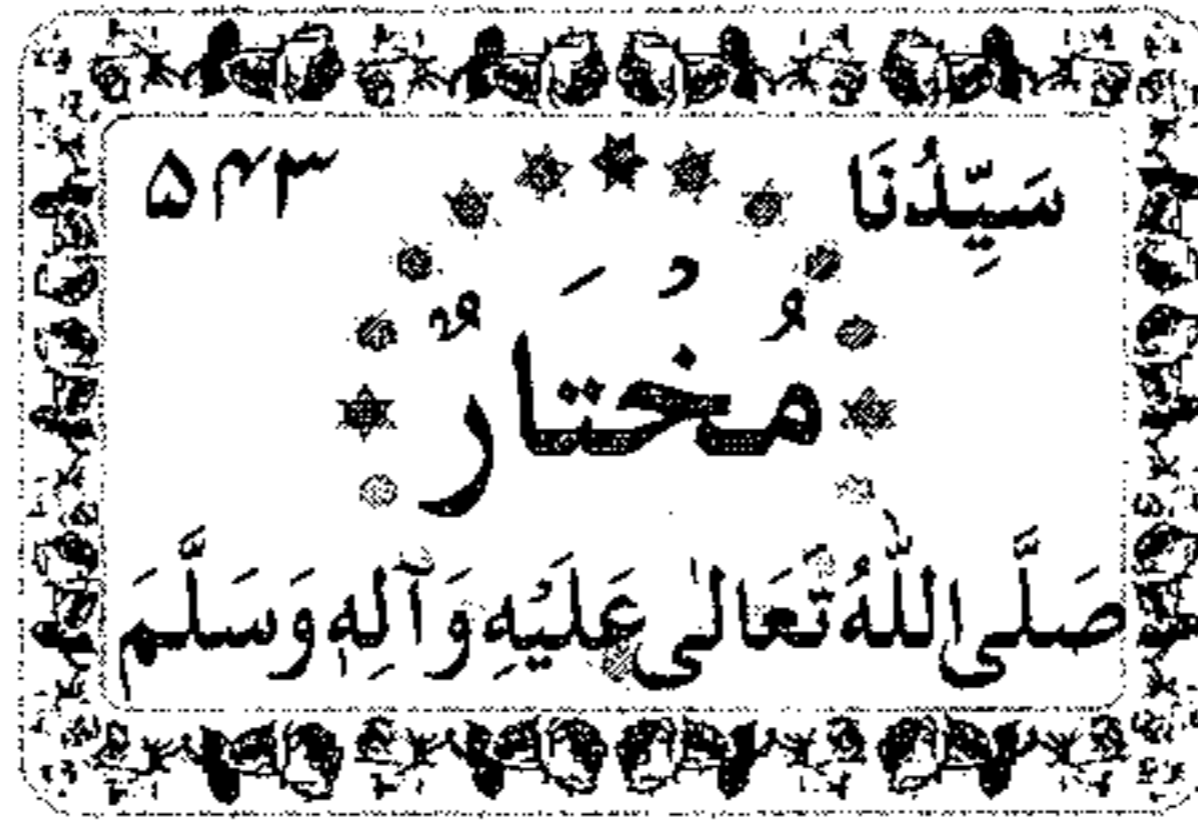 سَيِّدُنَا ۵۴۳
مُخْتَارٌ
صَلَّى اللّٰهُ تَعَالٰى عَلَيْهِ وَآلِهٖ وَسَلَّمَ